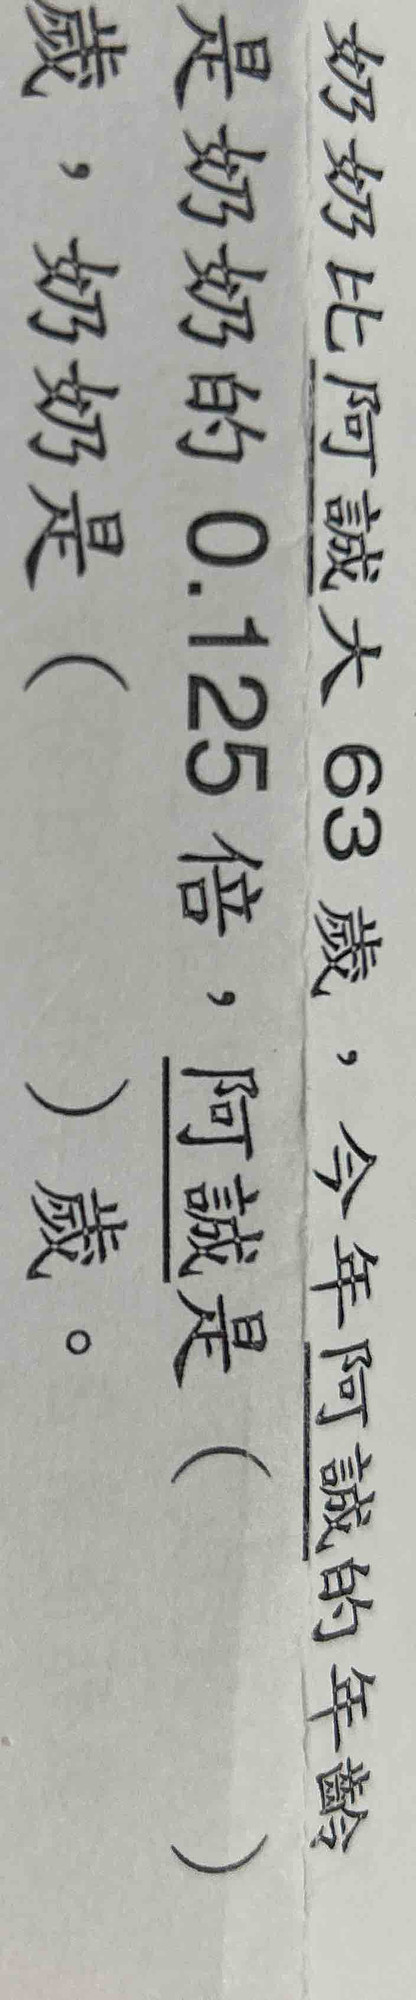 奶奶比阿誠大 63 歲，今年阿誠的年齡
是奶奶的 0.125 倍，阿誠是（　　　）
歲，奶奶是（　　　）歲。